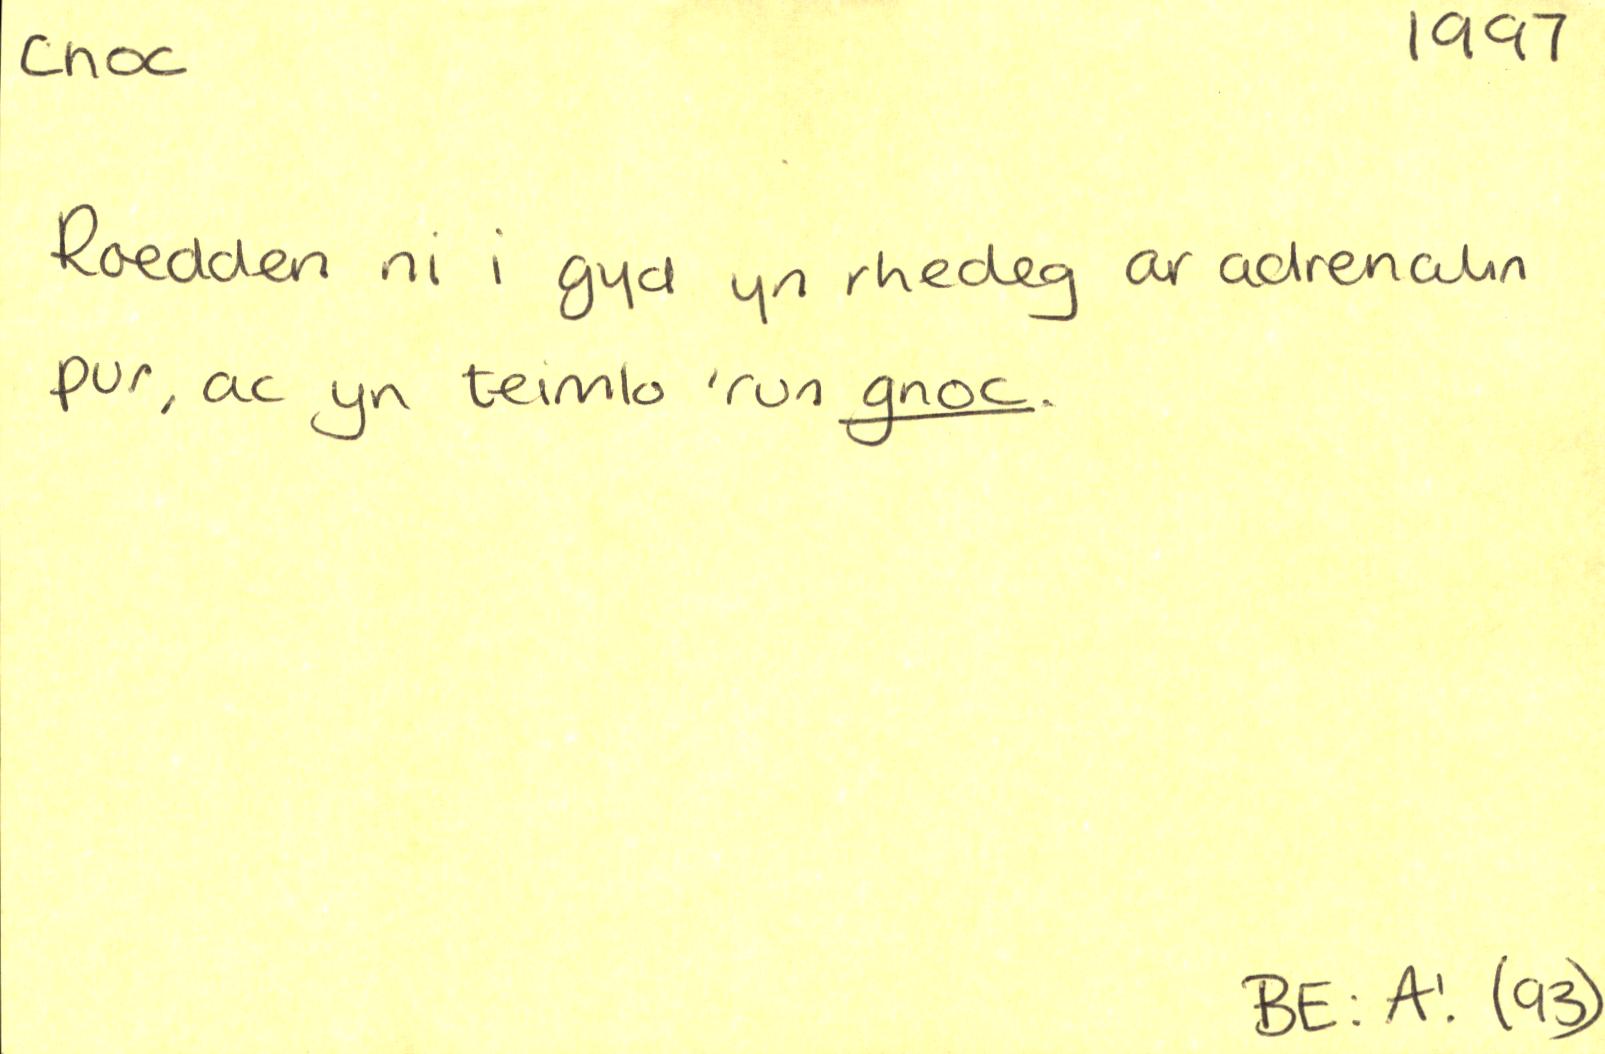 Cnoc 1997
Roedden ni i gyd yn rhedeg ar adrenalin
pur, ac yn teimlo 'run gnoc.
BE: A!. (93)